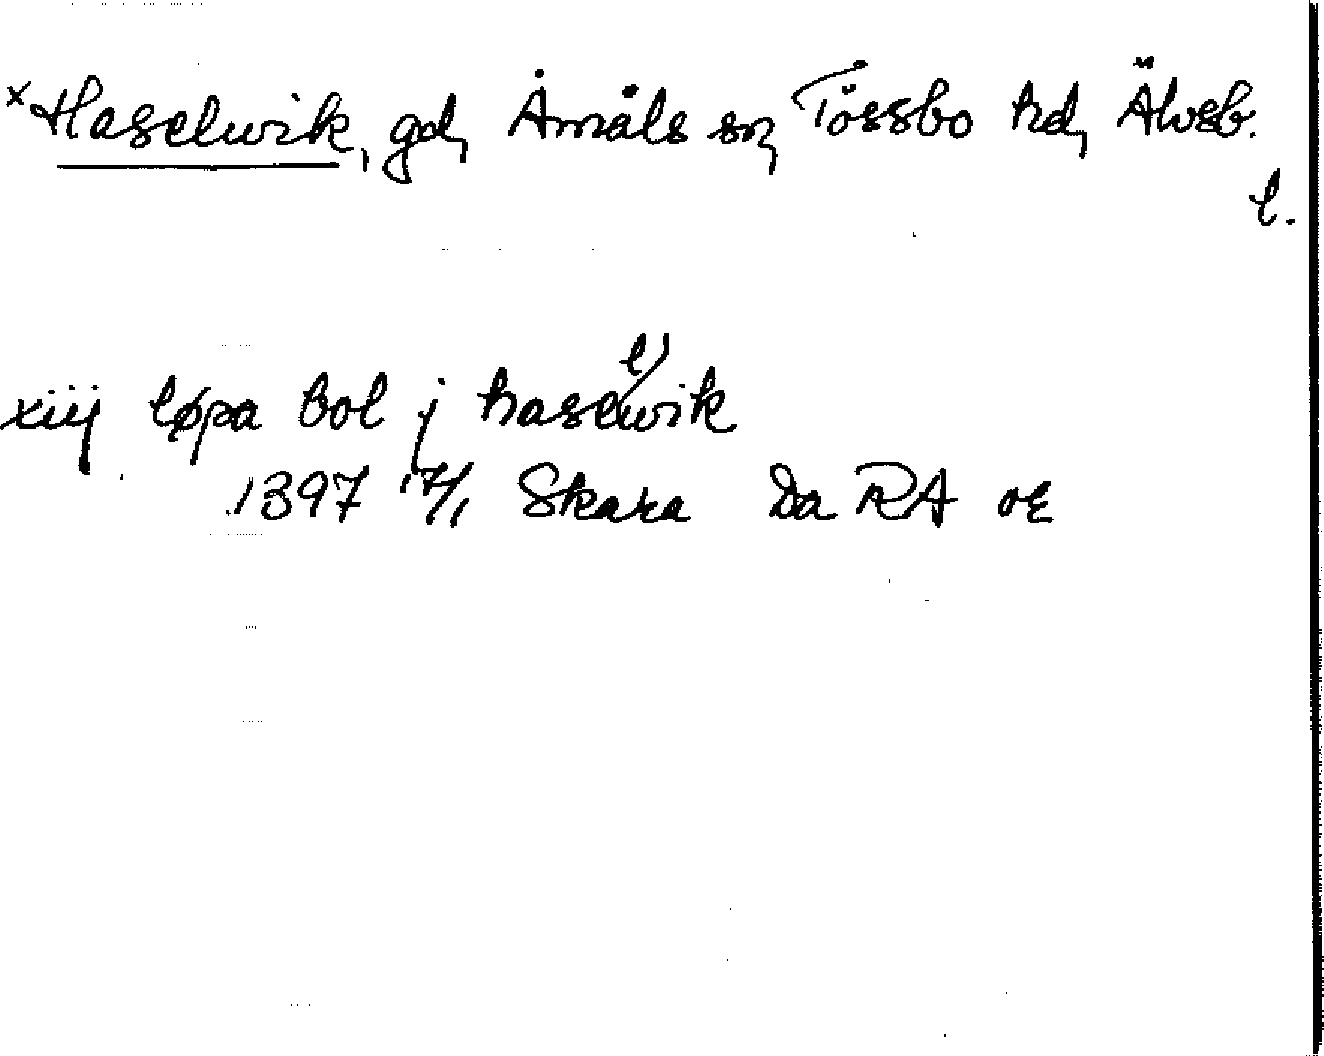 x Haselwik, gd, Åmåls sn, Tössbo hd, Älvsb.
l.
xiij løpa bol j haselwik
1397 17/1 Skara Da RA or